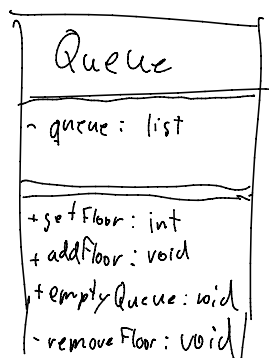 Queue
- queue: list
+ getFloor: int
+ addFloor: void
+ emptyQueue: void
- removeFloor: void